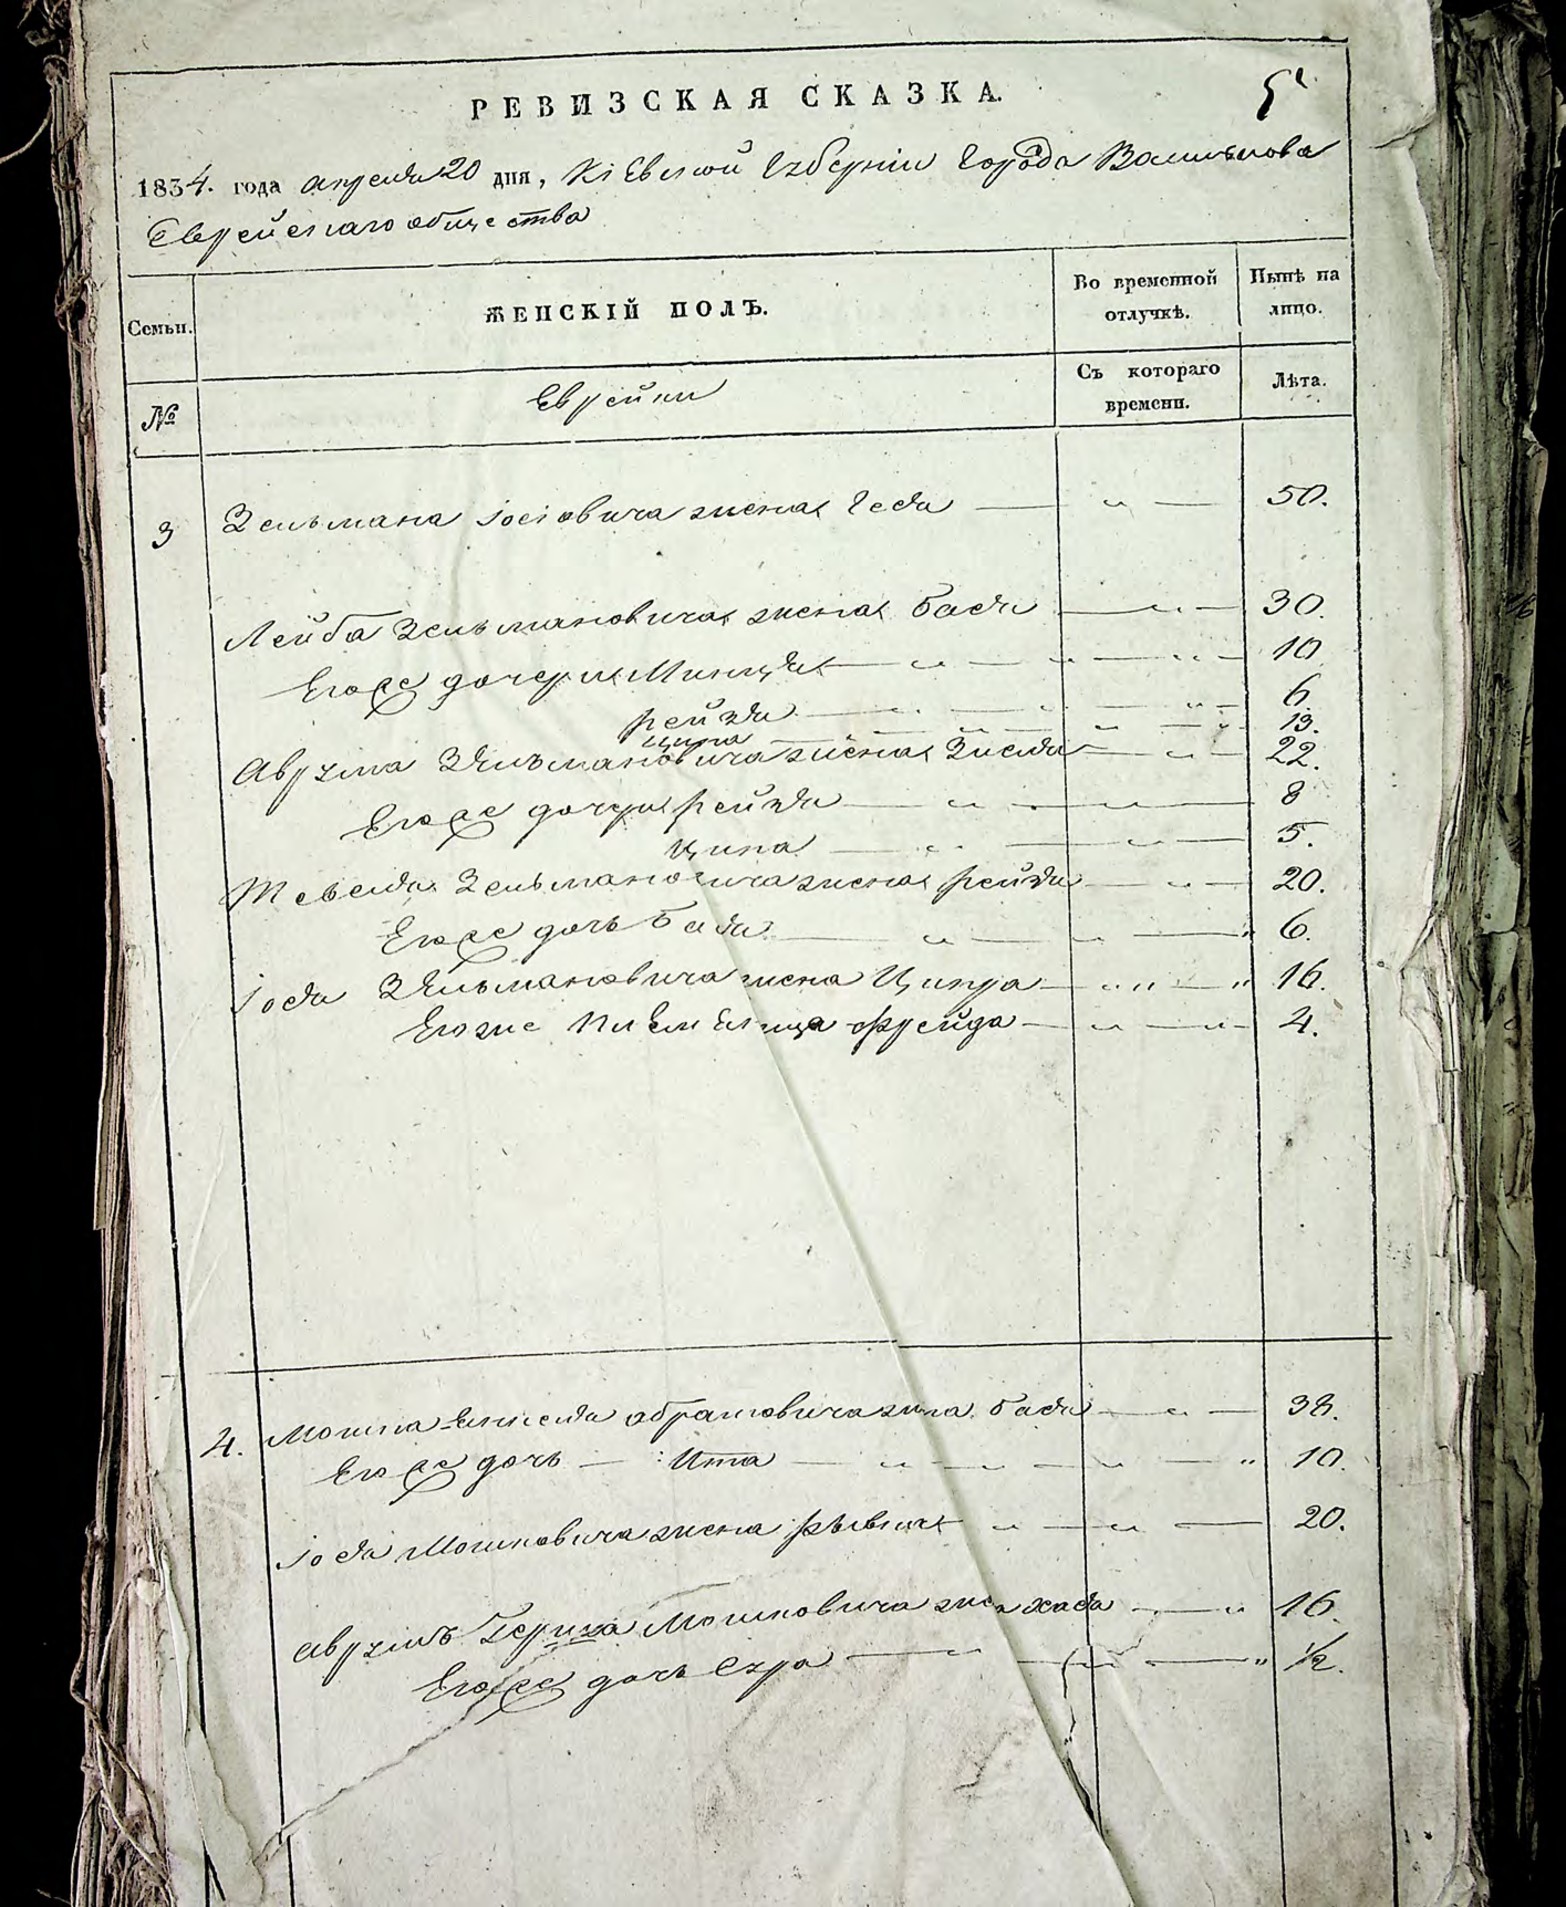 РЕВИЗСКАЯ СКАЗКА.
5
1834. года апреля 20 дня, Кіевской Губерніи Города Василькова
Еврейскаго общества
Семьи.
ЖЕНСКІЙ ПОЛЪ.
Во временной
отлучкѣ.
Нынѣ на
лицо.
№
Еврейки
Съ котораго
времени.
Лѣта.
3 Зельмана Іосіовича жена Геся — " — 50.
Лейба Зельмановича жена Бася — " — 30.
Его же дочери — " — " — " — 10
Рейзя — " — " — " — 6.
Ципа — " — " — " — 13.
Аврума Зельмановича жена Зисля — " — 22.
Его же дочери Рейзя — " — " — 8
Ципа — " — " — 5.
Тевеля Зельмановича жена Рейзя — " — 20.
Его же дочь Бася — " — " — " 6.
Іося Зельмановича жена Ципра — " " — " 16.
Его же племенница Фрейда — " — " — 4.
4. Мошка Абрамовича жена Бася — " — 38.
Его же дочь — Ита — " — " — " — " 10.
Іося Мошковича жена Рывка " — " — 20.
Аврумъ Герша Мошковича жена Хася — " 16.
Его же дочь Сура — " — " — " 1/2.